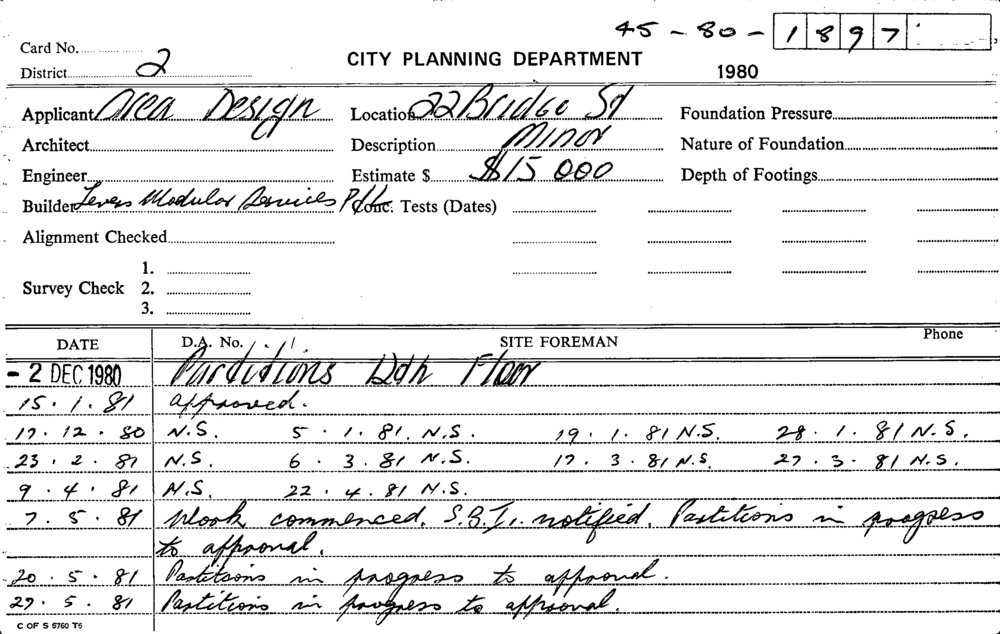 45-80-1897
Card No.
District 2
CITY PLANNING DEPARTMENT
1980
Applicant Area Design Location 22 Bridge St Foundation Pressure
Architect Description Minor Nature of Foundation
Engineer Estimate $ $15 000 Depth of Footings
Builder Modular Services P/L Conc. Tests (Dates)
Alignment Checked
1.
Survey Check 2.
3.
DATE D.A. No. SITE FOREMAN Phone
- 2 DEC 1980 Partitions 12th Floor
15.1.81 approved.
17.12.80 N.S. 5.1.81. N.S. 19.1.81 N.S. 28.1.81 N.S.
23.2.81 N.S. 6.3.81 N.S. 17.3.81 N.S. 27.3.81 N.S.
9.4.81 N.S. 22.4.81 N.S.
7.5.81 Work commenced. S.B.I. notified. Partitions in progress
to approval.
20.5.81 Partitions in progress to approval.
29.5.81 Partitions in progress to approval.
C OF S 6760 T6